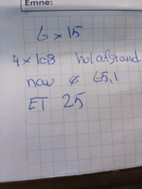 Emne:
6 x 15
4 x 108 hulafstand
nav ø 65,1
ET 25